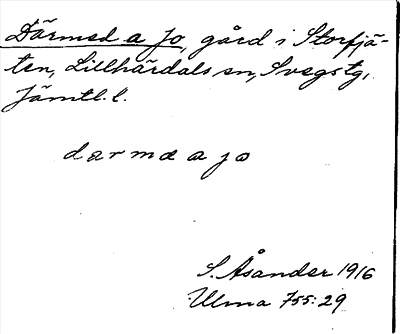 Därmed a Jo, gård i Storfjä-
ten, Lillhärdals sn, Svegs tg,
Jämtl. l.
darmd a jo
S. Åsander 1916
Ulma 755:29